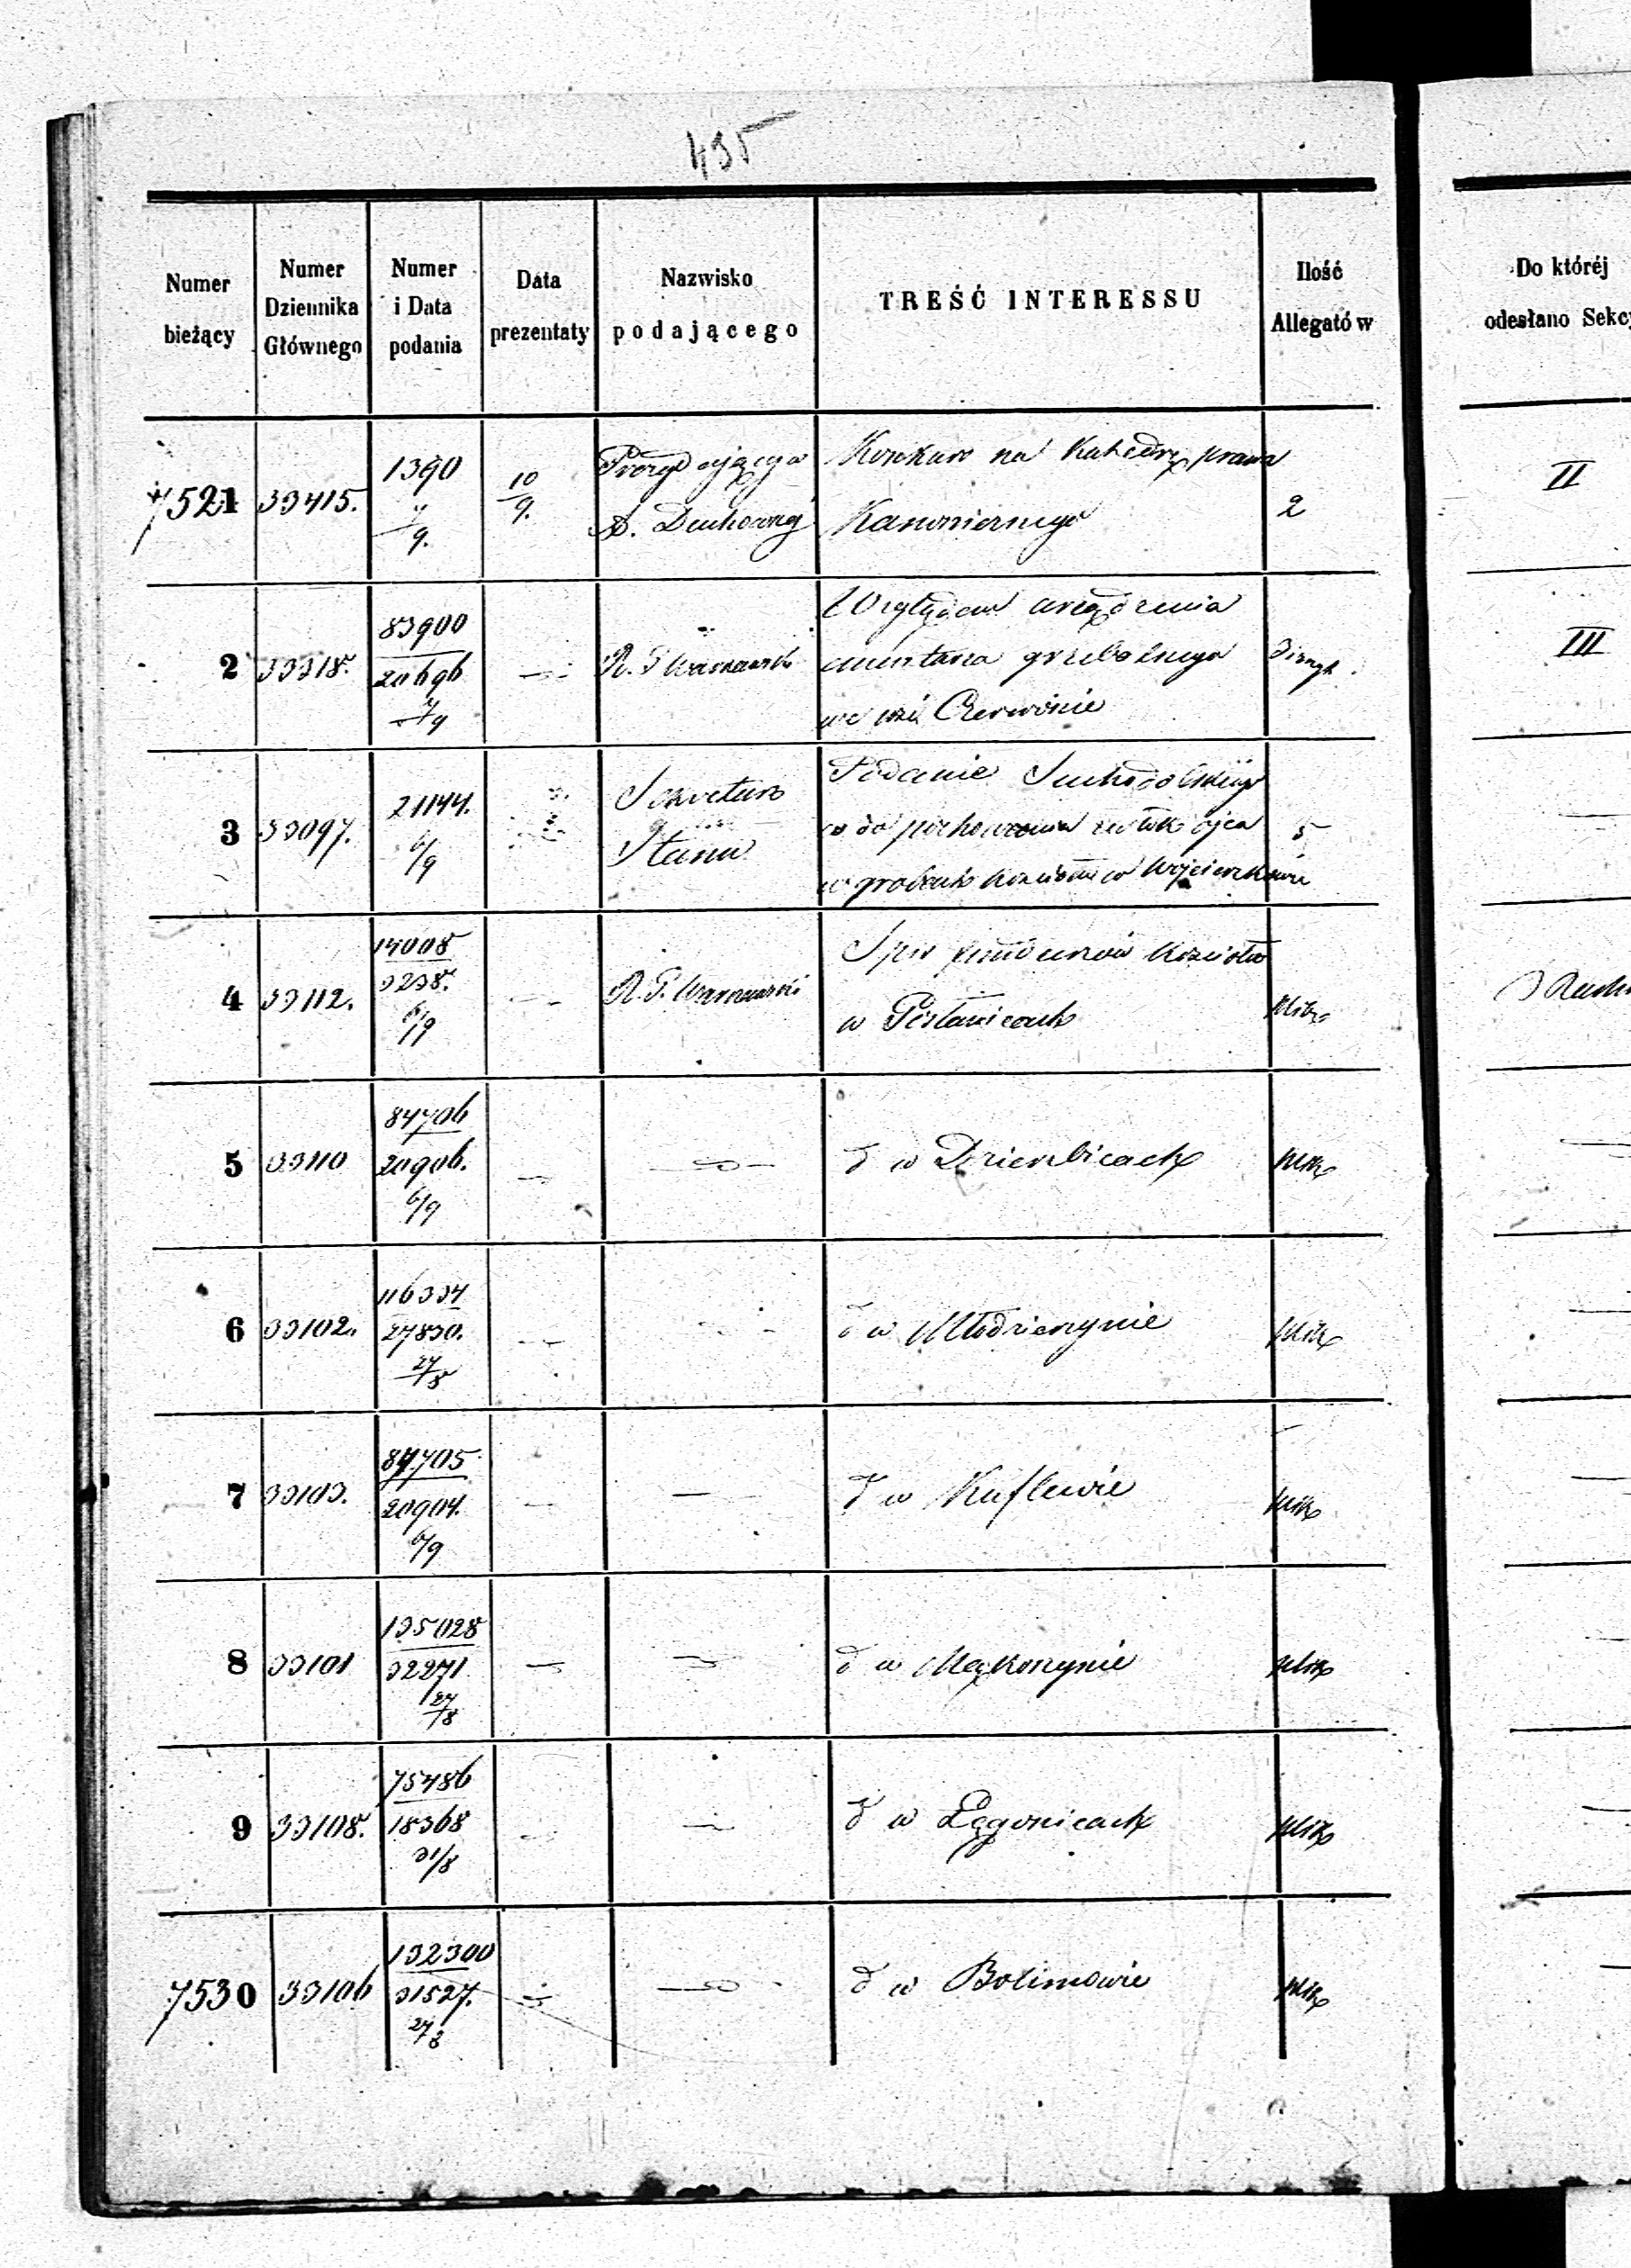 495
Numer bieżący
Numer Dziennika Głównego
Numer i Data podania
Data prezentaty
Nazwisko podającego
TREŚĆ INTERESSU
Ilość Allegatów
Do któréj odesłano Sekcy
7521 33415. 1390 7/9. 10/9. Prezydującyo A. Duchownej Konkurs na Katedrę prawa Kanonicznego 2 II
2 33318. 83900 20696 7/9 R. G. Warszawski Względem urządzenia cmentarza grzebalnego we wsi Czerwonie III
3 33097. 21144. 6/9 Sekretarz Stanu Podanie Suchodolskiego o do pochowania zwłok ojca w grobach kościoła w Wojcieszkowie 5
4 33112. 14008 3238. 6/9 R. G. Warszawski Spis funduszów kościoła w
5 33110 84706 20906. 6/9 d w Dzierzbicach
6 33102. 116334 27830. 27/8 d w Młodzieszynie
7 33103. 84705 20904. 6/9 d w Kuflewie
8 33101 135028 32271 27/8 d w Mąkoszynie
9 33108. 75486 18368 31/8 d w Łęgonicach
7530 33106 132300 31527. 27/8 d w Bolimowie